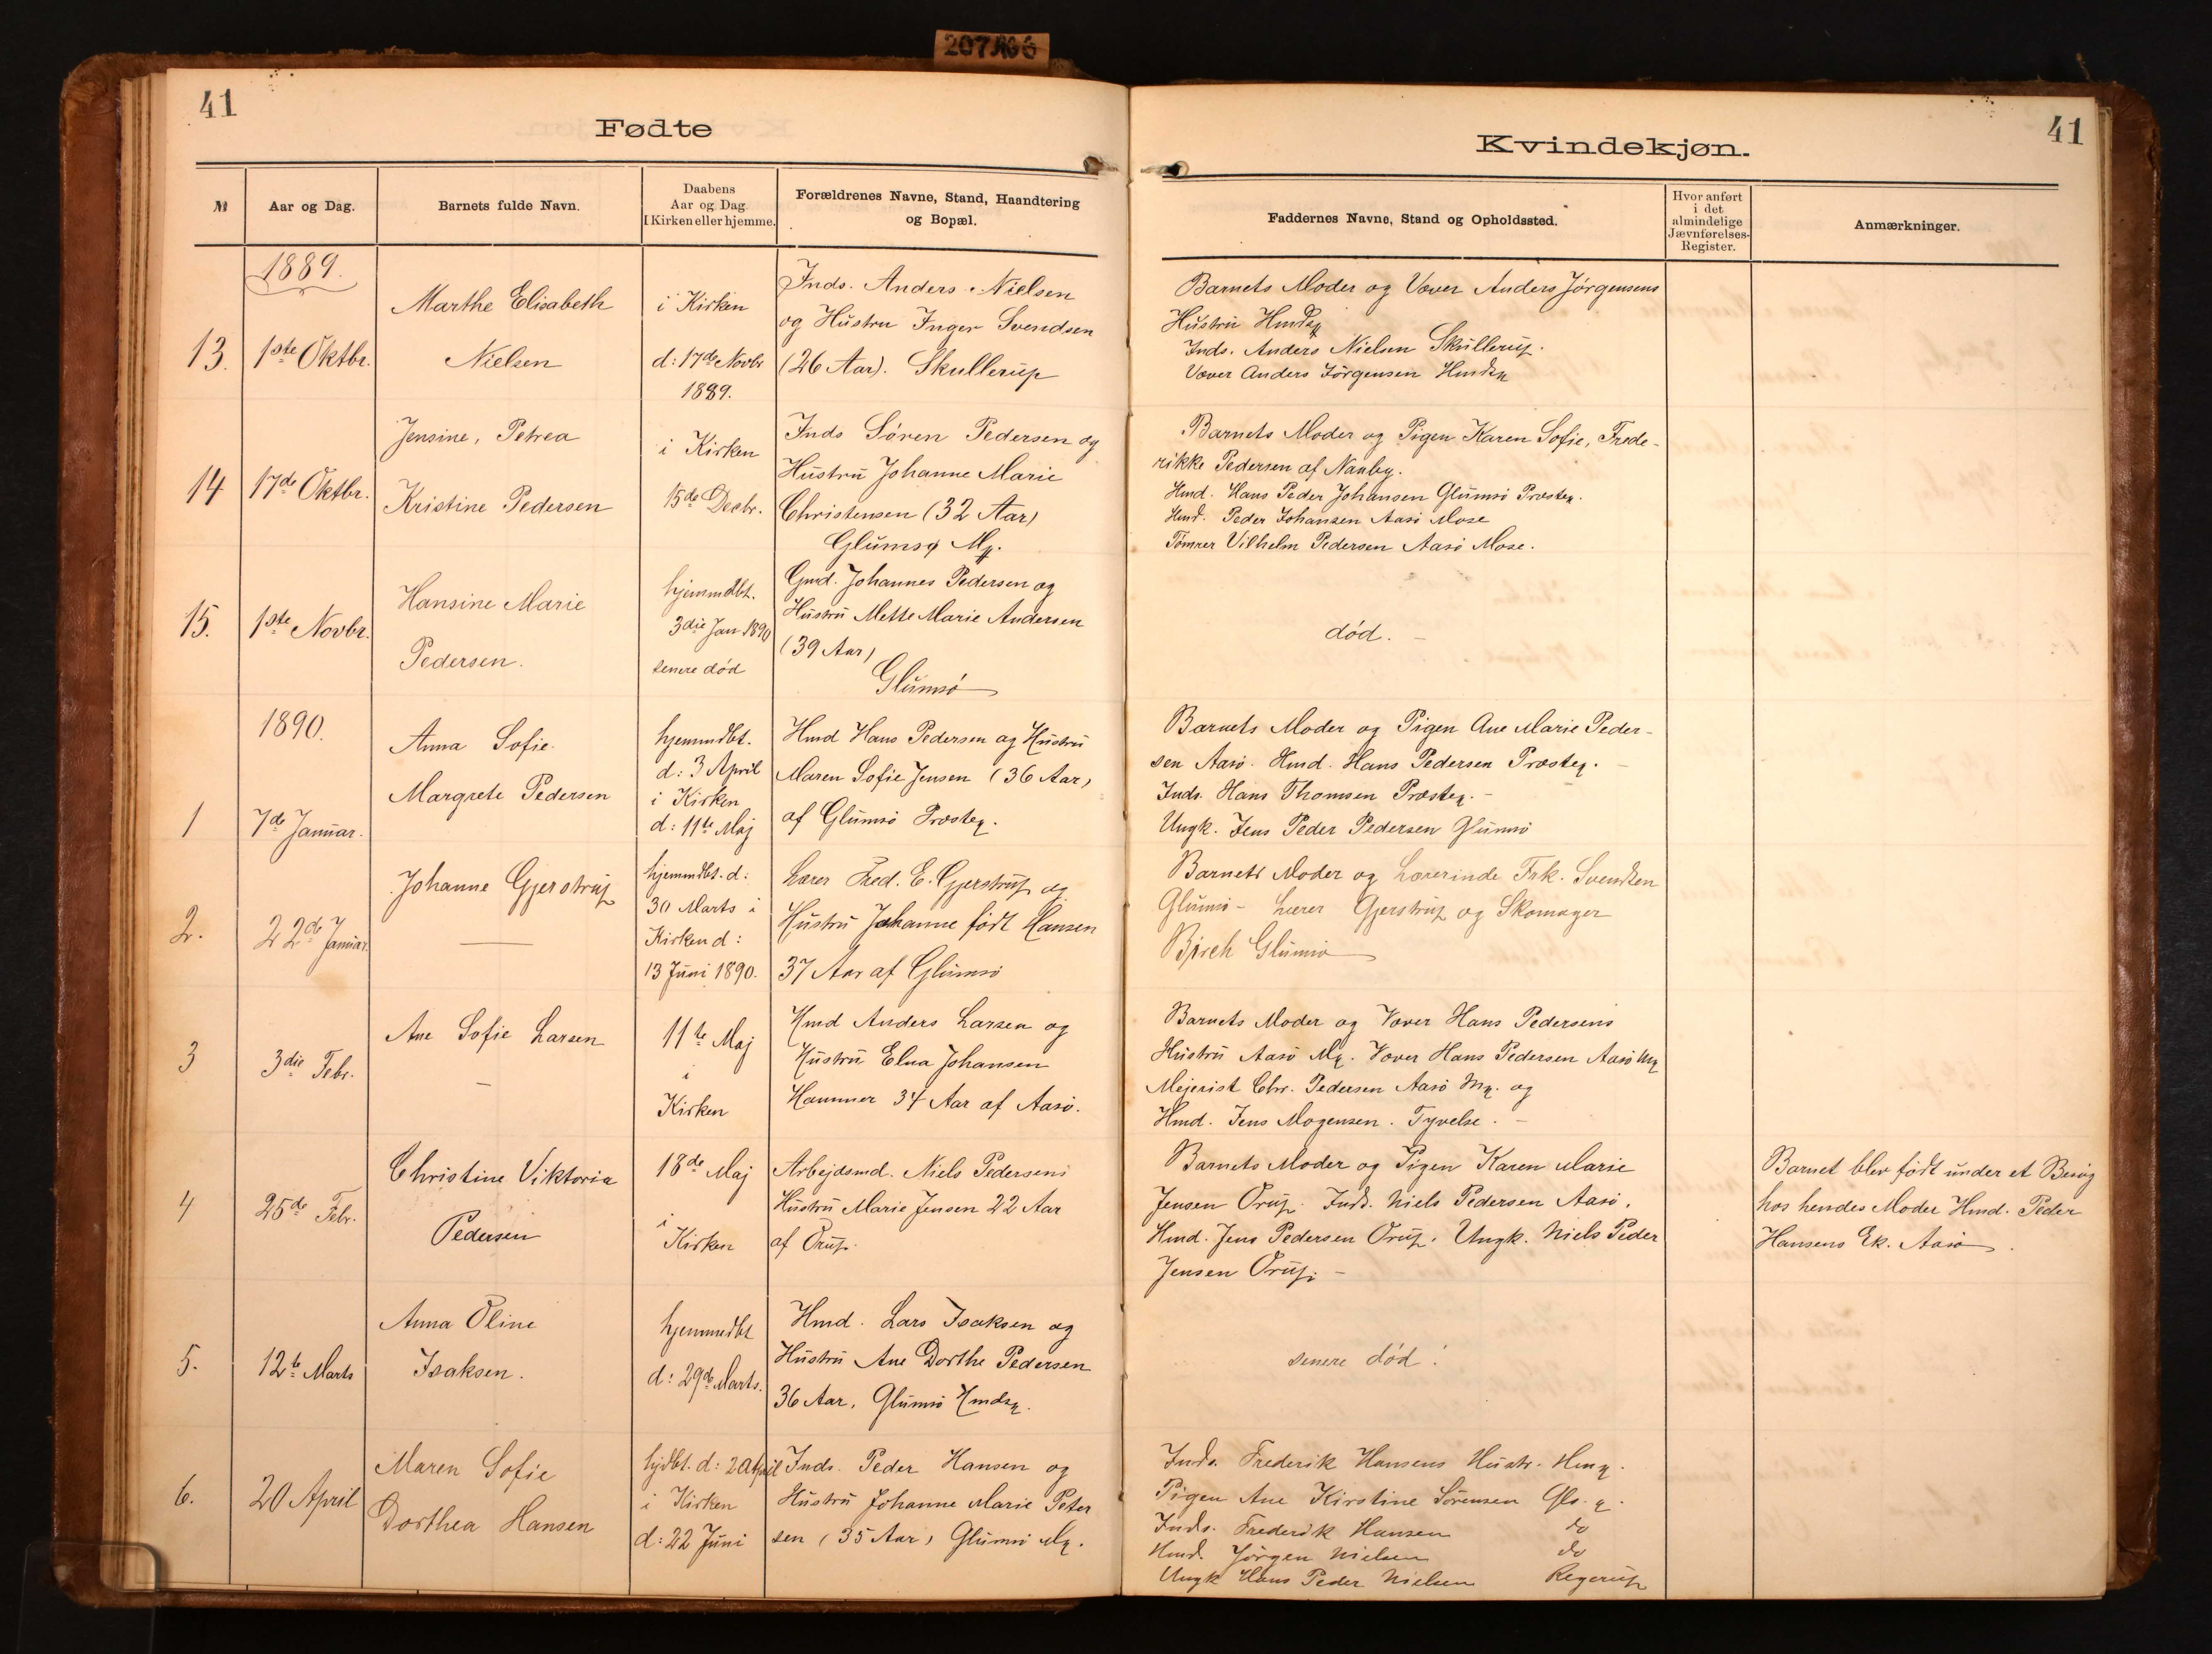 207
41
Fødte
№
Aar og Dag.
Barnets fulde Navn.
Daabens
Aar og Dag
I Kirken eller hjemme.
Forældrenes Navne, Stand, Haandtering
og Bopæl.
1889.
13.
1ste Oktbr.
Marthe Elisabeth
Nielsen
i Kirken
d: 17de Novbr
1889.
Inds. Anders Nielsen
og Hustru Inger Svendsen
(26 Aar). Skullerup
14
17de Oktbr.
Jensine, Petrea
Kristine Pedersen
i Kirken
15de Decbr.
Inds Sören Pedersen og
Hustru Johanne Marie
Christensen (32 Aar)
Glumsø Mg.
15.
1ste Novbr.
Hansine Marie
Pedersen.
hjemmdbt.
3die Jan 1890
senere død
Gmd. Johannes Pedersen og
Hustru Mette Marie Andersen
(39 Aar)
Glumsö
1890.
1
7de Januar.
Anna Sofie
Margrete Pedersen
hjemmdbt.
d: 3 April
i Kirken
d: 11te Maj
Hmd Hans Pedersen og Hustru
Maren Sofie Jensen (36 Aar)
af Glumsö Præsteg.
2.
22de Januar.
Johanne Gjerstrup
hjemmdbt. d:
30 Marts i
Kirken d:
13 Juni 1890.
Lærer Fred. E. Gjerstrup og
Hustru Johanne født Hansen
37 Aar af Glumsö
3
3die Febr.
Ane Sofie Larsen
11te Maj
i
Kirken
Hmd Anders Larsen og
Hustru Elna Johansen
Hammer 34 Aar af Aasö.
4
25de Febr.
Christine Viktoria
Pedersen
18de Maj
i
Kirken
Arbejdsmd. Niels Pedersens
Hustru Marie Jensen 22 Aar
af Örup.
5.
12te Marts
Anna Oline
Isaksen.
hjemmedbt
d: 29de Marts.
Hmd. Lars Isaksen og
Hustru Ane Dorthe Pedersen
36 Aar. Glumsö Hmdsg.
6.
20 April
Maren Sofie
Dorthea Hansen
hjdbt. d: 20 April
i Kirken
d: 22 Juni
Inds. Peder Hansen og
Hustru Johanne Marie Peter
sen (35 Aar) Glumsö Mg.
41
Kvindekjøn.
Faddernes Navne, Stand og Opholdssted.
Hvor anført
i det
almindelige
Jævnførelses-
Register.
Anmærkninger.
Barnets Moder og Væver Anders Jörgensens
Hustru Hmdsg
Inds. Anders Nielsen Skullerup.
Væver Anders Jörgensen Hmdsg
Barnets Moder og Pigen Karen Sofie, Frede-
rikke Pedersen af Nanby.
Hmd. Hans Peder Johansen Glumsö Præsteg.
Hmd. Peder Johansen Aasö Mose
Tömrer Vilhelm Pedersen Aasö Mose.
død.
Barnets Moder og Pigen Ane Marie Peder-
sen Aasö. Hmd. Hans Pedersen Præsteg.
Inds. Hans Thomsen Præsteg.
Ungk. Jens Peder Pedersen Glumsö
Barnets Moder og Lærerinde Frk. Svendsen
Glumsö - Lærer Gjerstrup og Skomager
Birch Glumsö
Barnets Moder og Væver Hans Pedersens
Hustru Aasö Mg. Væver Hans Pedersen Aasö Mg
Mejerist Chr. Pedersen Aasö Mg. og
Hmd. Jens Mogensen. Tyvelse.
Barnets Moder og Pigen Karen Marie
Jensen Örup. Inds. Niels Pedersen Aasö.
Hmd. Jens Pedersen Örup. Ungk. Niels Peder
Jensen Örup.
Barnet blev født under et Besög
hos hendes Moder Hmd. Peder
Hansens Ek. Aasö.
senere død.
Inds. Frederik Hansens Hustr. Hmg.
Pigen Ane Kirstine Sörensen Gls. g.
Inds. Frederik Hansen do
Hmd. Jörgen Nielsen do
Ungk Hans Peder Nielsen Regerup